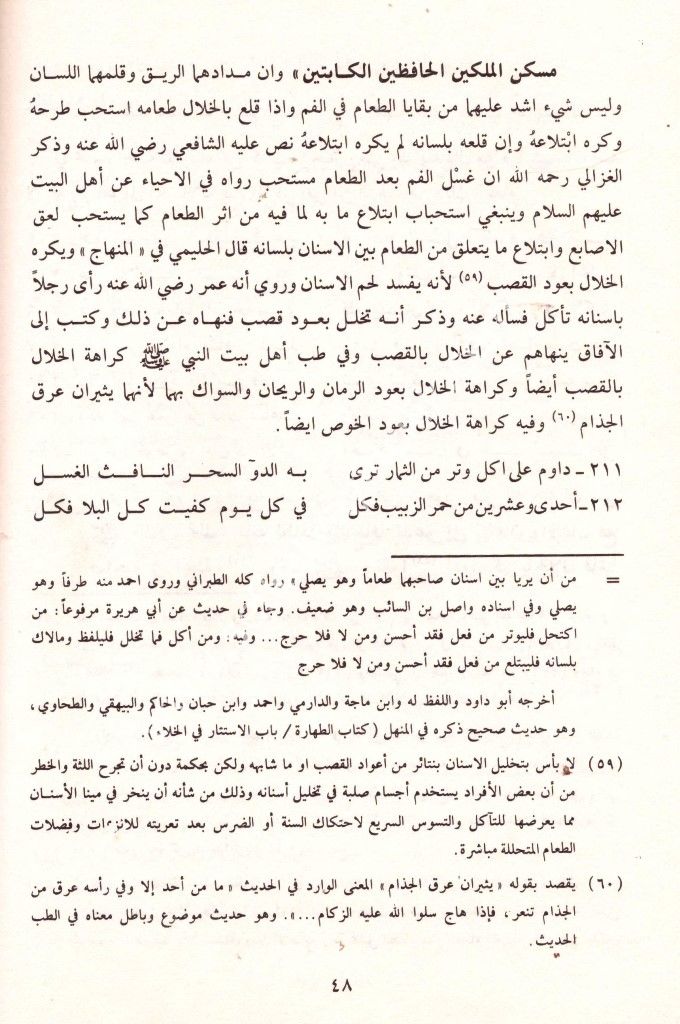 مسكن الملكين الحافظين الكاتبين» وان مدادهما الريق وقلمهما اللسان
وليس شيء اشد عليهما من بقايا الطعام في الفم واذا قلع بالخلال طعامه استحب طرحهُ
وكره ابْتلاعهُ وإن قلعه بلسانه لم يكره ابتلاعهُ نص عليه الشافعي رضي الله عنه وذكر
الغزالي رحمه الله ان غسْل الفم بعد الطعام مستحب رواه في الاحياء عن أهل البيت
عليهم السلام وينبغي استحباب ابتلاع ما به لما فيه من اثر الطعام كما يستحب لعق
الاصابع وابتلاع ما يتعلق من الطعام بين الاسنان بلسانه قال الحليمي في «المنهاج» ويكره
الخلال بعود القصب (٥٩) لأنه يفسد لحم الاسنان وروي أنه عمر رضي الله عنه رأى رجلاً
باسنانه تأكل فسأله عنه وذكر أنه تخلل بعود قصب فنهاه عن ذلك وكتب إلى
الآفاق ينهاهم عن الخلال بالقصب وفي طب أهل بيت النبي ﷺ كراهة الخلال
بالقصب أيضاً وكراهة الخلال بعود الرمان والريحان والسواك بهما لأنهما يثيران عرق
الجذام (٦٠) وفيه كراهة الخلال بعود الخوص ايضاً.
٢١١ ـ داوم على اكل وتر من الثمار ترى به الدوآ السحر النافث الغسل
٢١٢ ـ أحدى وعشرين من حمر الزبيب فكل في كل يوم كفيت كل البلا فكل
= من أن يريا بين اسنان صاحبهما طعاماً وهو يصلي» رواه كله الطبراني وروى احمد منه طرفاً وهو
يصلي وفي اسناده واصل بن السائب وهو ضعيف. وجاء في حديث عن أبي هريرة مرفوعاً: من
اكتحل فليوتر من فعل فقد أحسن ومن لا فلا حرج... وفيه: ومن أكل فما تخلل فليلفظ ومالاك
بلسانه فليبتلع من فعل فقد أحسن ومن لا فلا حرج
أخرجه أبو داود واللفظ له وابن ماجة والدارمي واحمد وابن حبان والحاكم والبيهقي والطحاوي،
وهو حديث صحيح ذكره في المنهل (كتاب الطهارة / باب الاستتار في الخلاء).
(٥٩) لا بأس بتخليل الاسنان بنتائر من أعواد القصب او ما شابهه ولكن بحكمة دون أن تجرح اللثة والخطر
من أن بعض الأفراد يستخدم أجسام صلبة في تخليل أسنانه وذلك من شأنه أن ينخر في مينا الأسنان
مما يعرضها للتآكل والتسوس السريع لاحتكاك السنة أو الضرس بعد تعريته للانزيمات وفضلات
الطعام المتحللة مباشرة.
(٦٠) يقصد بقوله «يثيران عرق الجذام» المعنى الوارد في الحديث «ما من أحد إلا وفي رأسه عرق من
الجذام تنعر، فإذا هاج سلوا الله عليه الزكام...». وهو حديث موضوع وباطل معناه في الطب
الحديث.
٤٨